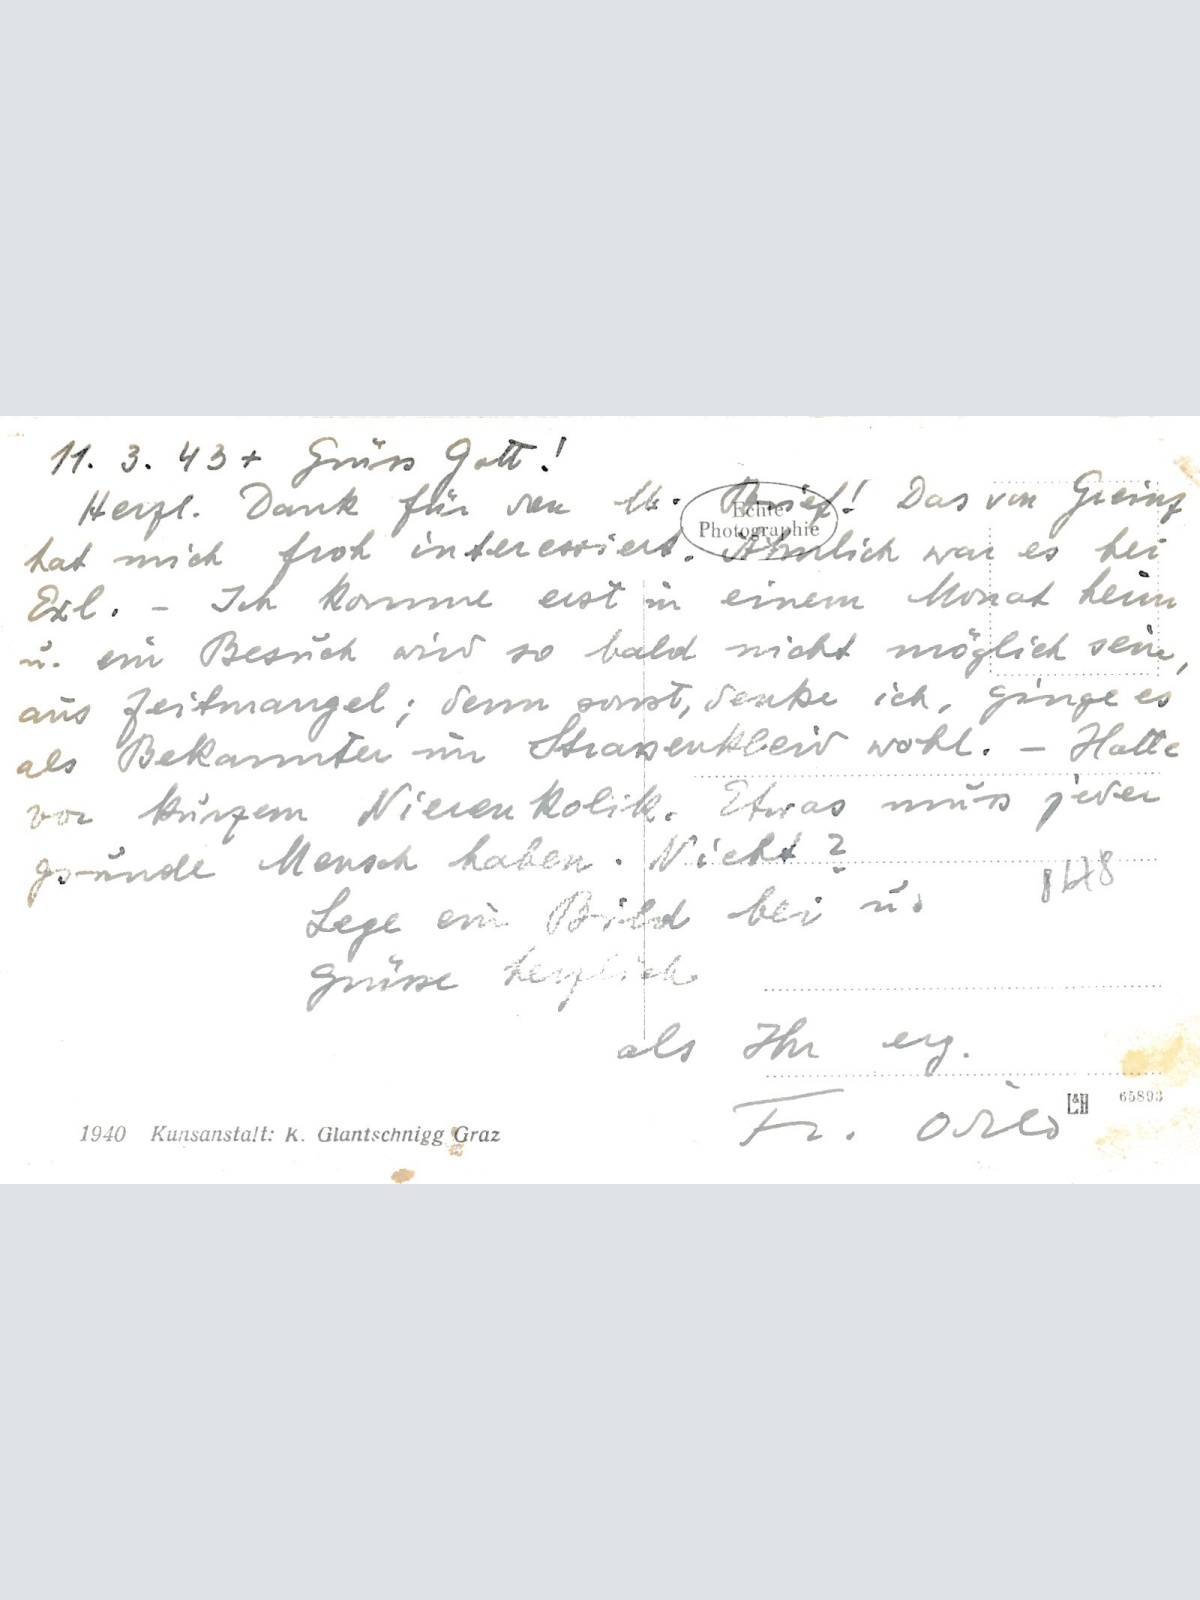 11. 3. 43 + Grüss Gott!
Herzl. Dank für den lb. Brief! Das von Greinz
Echte
Photographie
hat mich froh interessiert. Ähnlich war es bei
Exl. – Ich komme erst in einem Monat heim
u. ein Besuch wird so bald nicht möglich sein,
aus Zeitmangel; denn sonst, denke ich, ginge es
als Bekannter im Strassenkleid wohl. – Hatte
vor kurzem Nierenkolik. Etwas muss jeder
gsunde Mensch haben. Nicht?
Lege ein Bild bei u.
grüsse herzlich
als Ihr erg.
Fr.
L&H 65893
1940 Kunsanstalt: K. Glantschnigg Graz